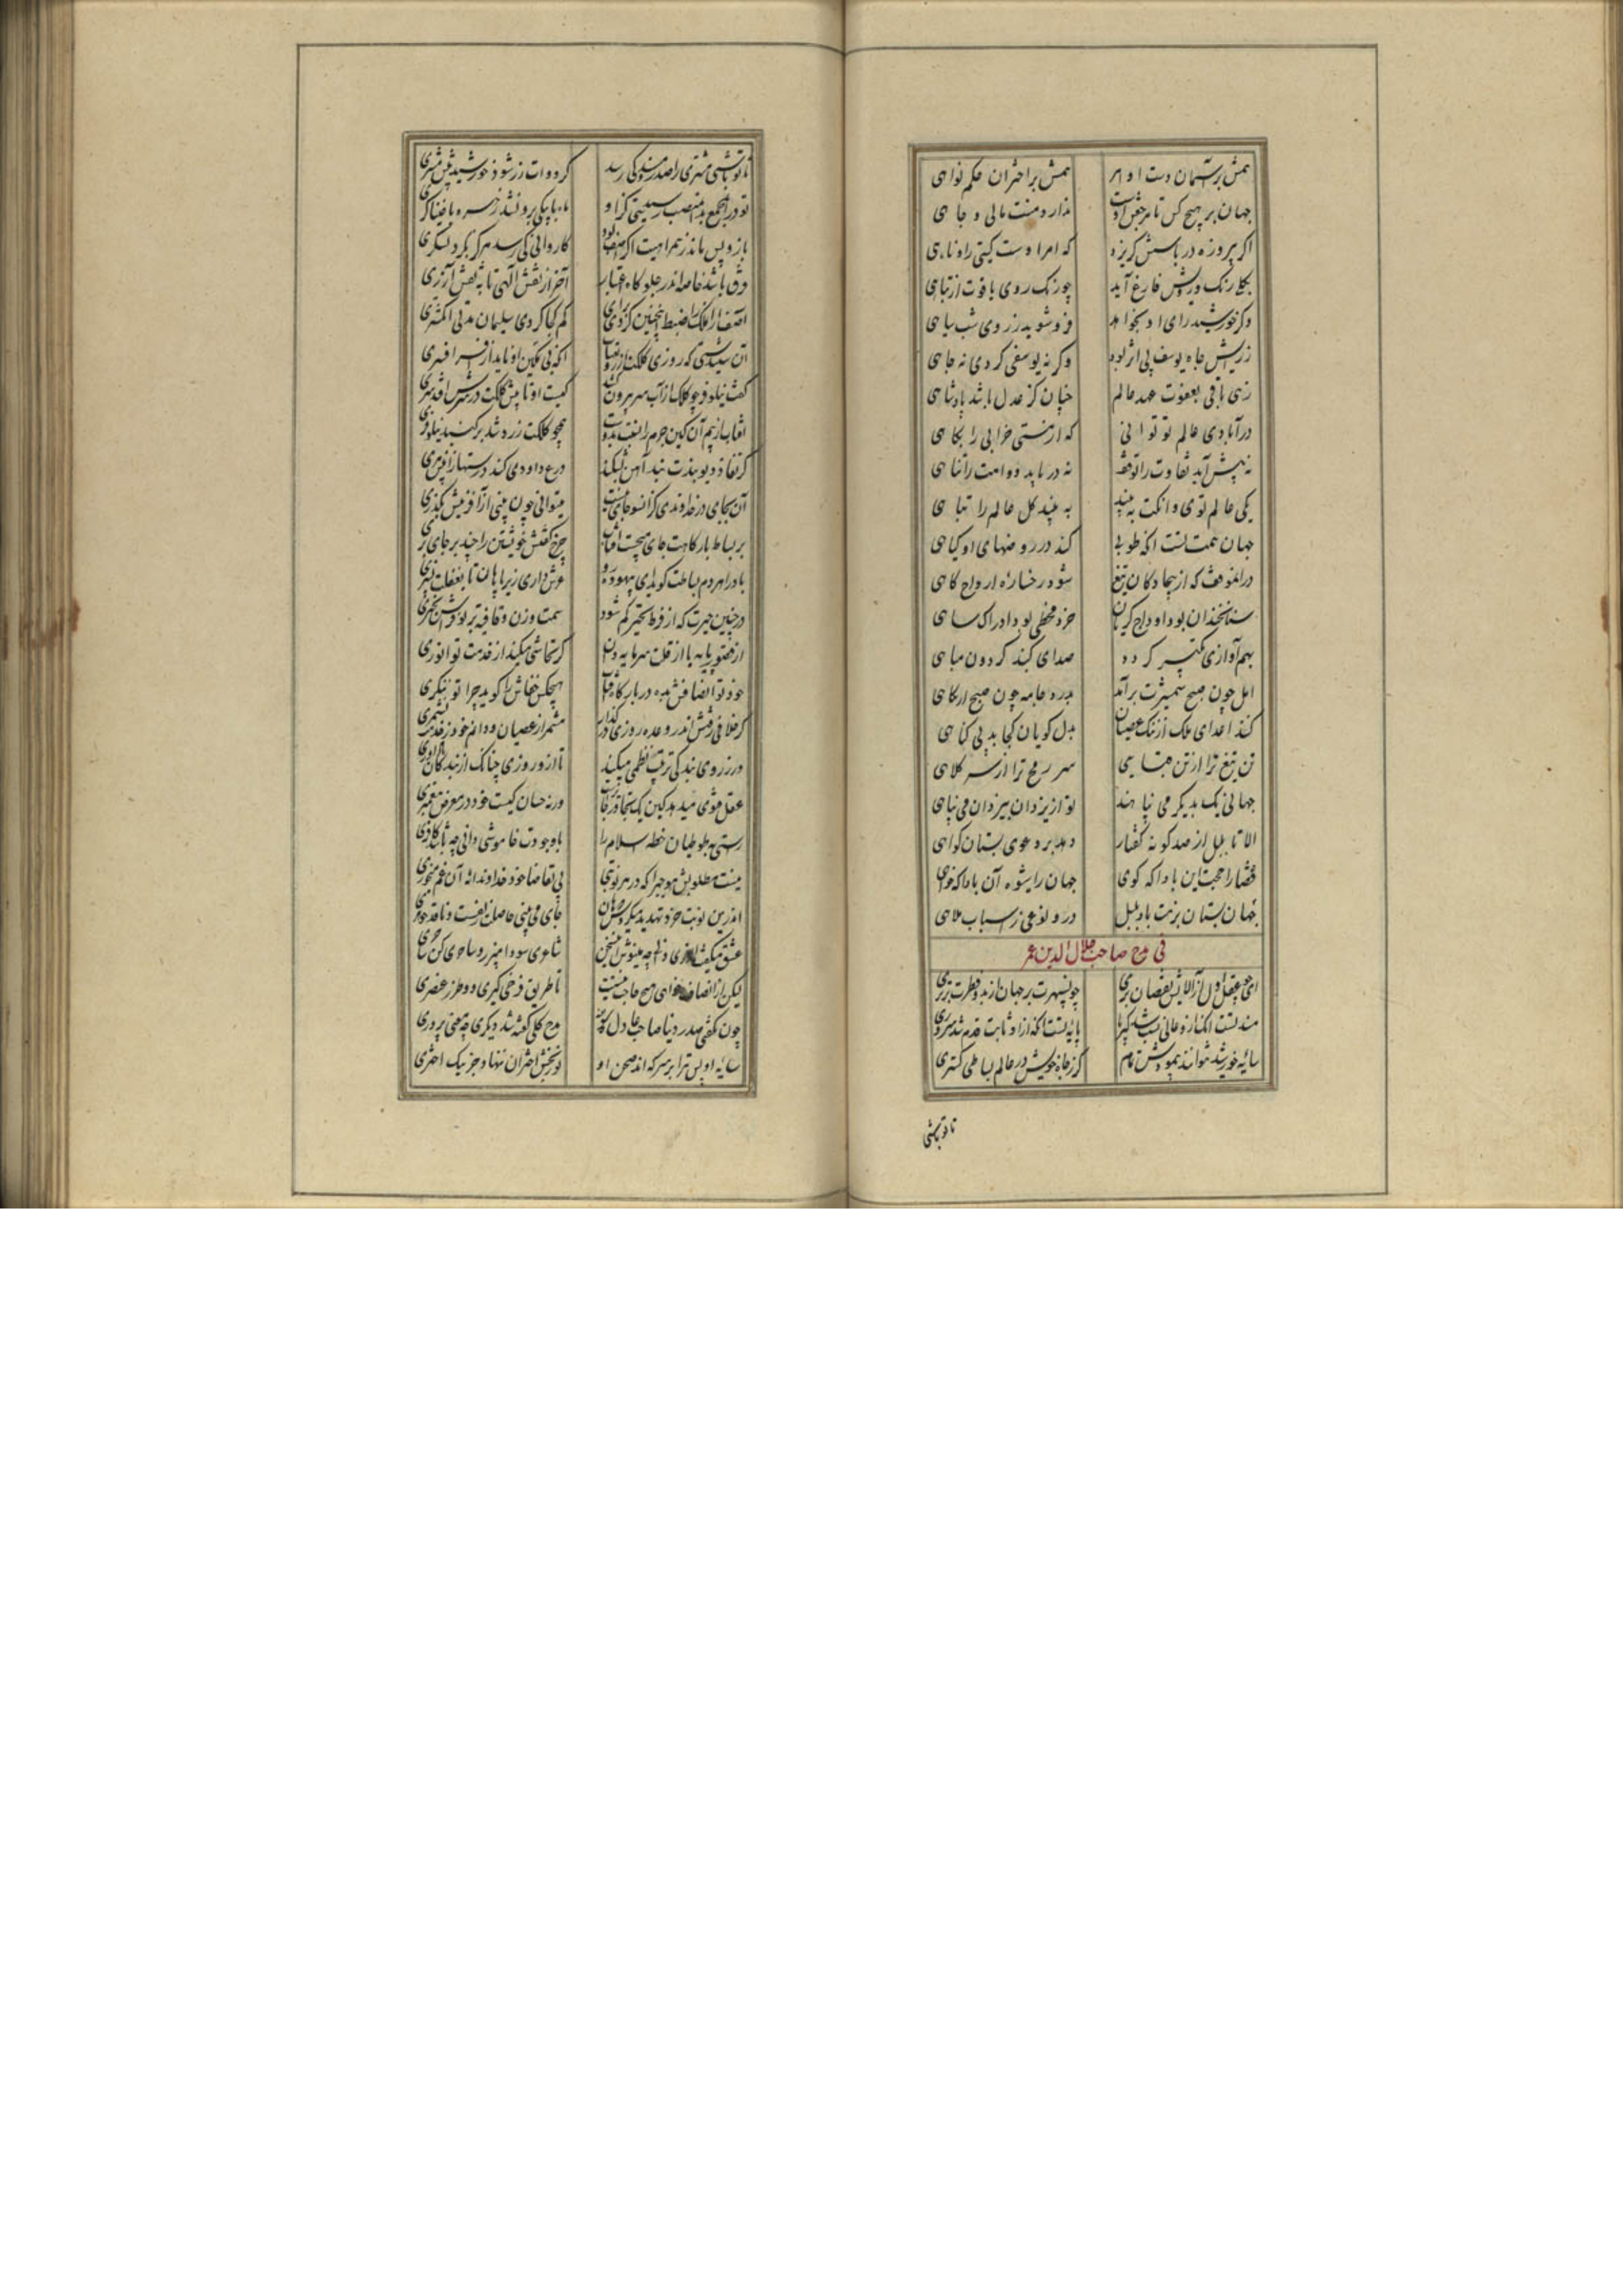 همش بر آسمان دست اوامر همش بر اختران حکم نواهی
جهان بر هیچ کس تا مرجعش اوست ندارد منت مالی و جاهی
اگر پیروزه در باسش گریزد که امر اوست گیتی را و ناهی
بکلی رنگ رویش فارغ آید چو رنگ روی یاقوت از تباهی
وگر خورشید رای او بخواهد فرو شوید ز روی شب سیاهی
زرایش جاه یوسف بی اثر بود وگرنه یوسفی کردی نه چاهی
زهی باقی بعفوت عهد عالم چنان کز عدل باشد پادشاهی
در آبادی عالم تو توانی که از هستی خرابی را بکاهی
نه پیش آید تفاوت را توقف نه دریابد دوامت را تناهی
یکی عالم توی وانکت به بیند به بیند کل عالم را تباهی
جهان همت تست انکه طوبی کند در روضهای او گیاهی
در ان موقف که از بیجادگان تیغ شود رخساره ارواح کاهی
سنا خندان بود اوداج گریان خرد مخطی بود ادراک ساهی
بهم آوازی تکبیر گردد صدای گنبد گردون مباهی
اجل چون صبح شمشیرت برآمد بدرد جامه چون صبح از پگاهی
کند اعدای ملک از ننگ عصیان بدل گویان کجا بد بی گناهی
تن تیغ ترا از تن قبایی سر رمح ترا از سر کلاهی
جهانی یک بدیگر می پناهند تو از یزدان بیزدان می پناهی
الا تا بلبل از صد گونه گفتار دهد بر دعوی بستان گواهی
قضا را حجت این بادا که گوی جهان را شیوه آن بادا که خواهی
جهان بستان بزمت باد و بلبل درو نوعی ز اسباب ملاهی
فی مدح صاحب جلال الدین عمر
ای چو عقل اول از آلایش نقصان بری چون سپهرت بر جهان از بدو فطرت برتری
مسند تست انکه ازو عالی نسب شد کبریا پایه تست انکه ازو ثابت قدم شد سروری
سایه خورشید نتوانند پیمودش تمام گر ز جاه خویش در عالم بساطی گستری
تا تو باشی
تا تو باشی مشتری را صدر و مسند کی رسد گر دواتت زر شود خورشید پیش مشتری
تو در ان مجمع بدین منصب رسیدستی کزاو ماه با پیکی برو نشد زهره با خنیاگری
باز پس ماند ز همراهیت اگر آصف بود کاروانی کی رسد هرگز بگرد لشکری
فرق باشد خاصه اندر جلوه گاه اعتبار آخر از نقش الهی تا به نقش آزری
آصف ار ملک را ضبط اینچنین کردی برای کم کجا کردی سلیمان مدتی انگشتری
آن سیستی که روزی کلکت از روی عتاب انکه بی تمکین او ناید از افسر افسری
گفت نیلوفر چو کلک از آب سر بیرون کشد کیست او تا پیش کلکت در سرش افتد سری
آفتاب از بیم آن کین جرم را نسبت بدوست همچو کلکت زرد شد بر گنبد نیلوفری
گر نفاذ دیو بندت بند آهن بشکند درع داودی کند در دستها ز افسری
آن بجای در خداوندی کز انسو جای نیست میتوانی چون ببینی از آفرینش بگذری
بر بساط بارگاهت جای می جست آفتاب چرخ گفتش خویشتن را چند بر جای بری
باد را هر دم بساطت گوید ای بیهوده رو عرش داری زیر پا هان تا بغفلت نسپری
در چنین حیرت که از فرط تحیر گم شود سمت وزن و قافیه بر بوفراس بحتری
گر تحاشی میکند از خدمت تو انوری
خود تو انصافش بده در بارگاه آفتاب هیچکس خفاش را گوید چرا تو ننگری
گر خلافی رفتش اندر وعده روزی در گذار مشمر از عصیان و دانم خود ز خدمت نشمری
ور ز روی بندگی ترتیب نظمی میکند تا ازو روزی چنانک از بندگان
عقل فتوی میدهد کین یک تجاوز جایزست ورنه حسان کیست خود در معرض پیغمبری
رستی به طوطیان خطه اسلام را با وجودت خاموشی دانی چه باشد کافری
نیست مطلوبش مجیرا که در هر نوبتی بی تقاضا خود خداوندانه آن غم میخوری
اندرین نوبت خرد تهدید میکردش که هان جای می بینی حاصلی تا نفست و ناقد جوهری
عشق میگفت انوری دانی چه مینوش این سخن شاعری سودا مپز رو ساحری کن ساحری
لیکن از انصاف خواهی هیچ حاجب نیست تا طریق فرخی گیری و طرز عنصری
چون گفتی صدر دنیا صاحب عادل عمر مدح کلی گفته شد دیگری چه معنی پروری
سایه او بس ترا بر سر که اندر صحن او نوربخش اختران ننهاد جز نیک اختری